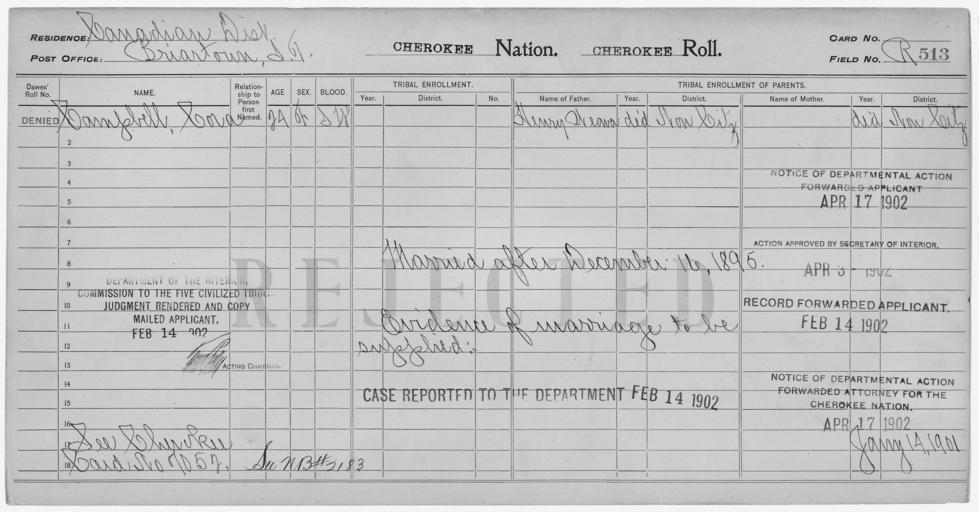 RESIDENCE: Canadian Dist.
POST OFFICE: Briartown, I.T.
CHEROKEE Nation. CHEROKEE Roll.
CARD NO.
FIELD NO. R 513
Dawes' Roll No.
NAME.
Relationship to Person first Named.
AGE
SEX.
BLOOD.
TRIBAL ENROLLMENT.
Year. District. No.
TRIBAL ENROLLMENT OF PARENTS.
Name of Father. Year. District. Name of Mother. Year. District.
DENIED Campbell, Cora 24 F I W Henry did Non Citz did Non Citz
2
3
4
5
6
7
8
9
10
11
12
13
14
15
16
17
18
NOTICE OF DEPARTMENTAL ACTION
FORWARDED APPLICANT
APR 17 1902
Married after December 16, 1895.
ACTION APPROVED BY SECRETARY OF INTERIOR.
APR 3 - 1902
REJECTED
DEPARTMENT OF THE INTERIOR,
COMMISSION TO THE FIVE CIVILIZED TRIBES.
JUDGMENT RENDERED AND COPY
MAILED APPLICANT.
FEB 14 1902
ACTING CHAIRMAN.
Evidence of marriage to be
supplied:
RECORD FORWARDED APPLICANT.
FEB 14 1902
CASE REPORTED TO THE DEPARTMENT FEB 14 1902
NOTICE OF DEPARTMENTAL ACTION
FORWARDED ATTORNEY FOR THE
CHEROKEE NATION.
APR 17 1902
See Cherokee
Card No 7057.
See NB# 2183
Jany 14, 1901